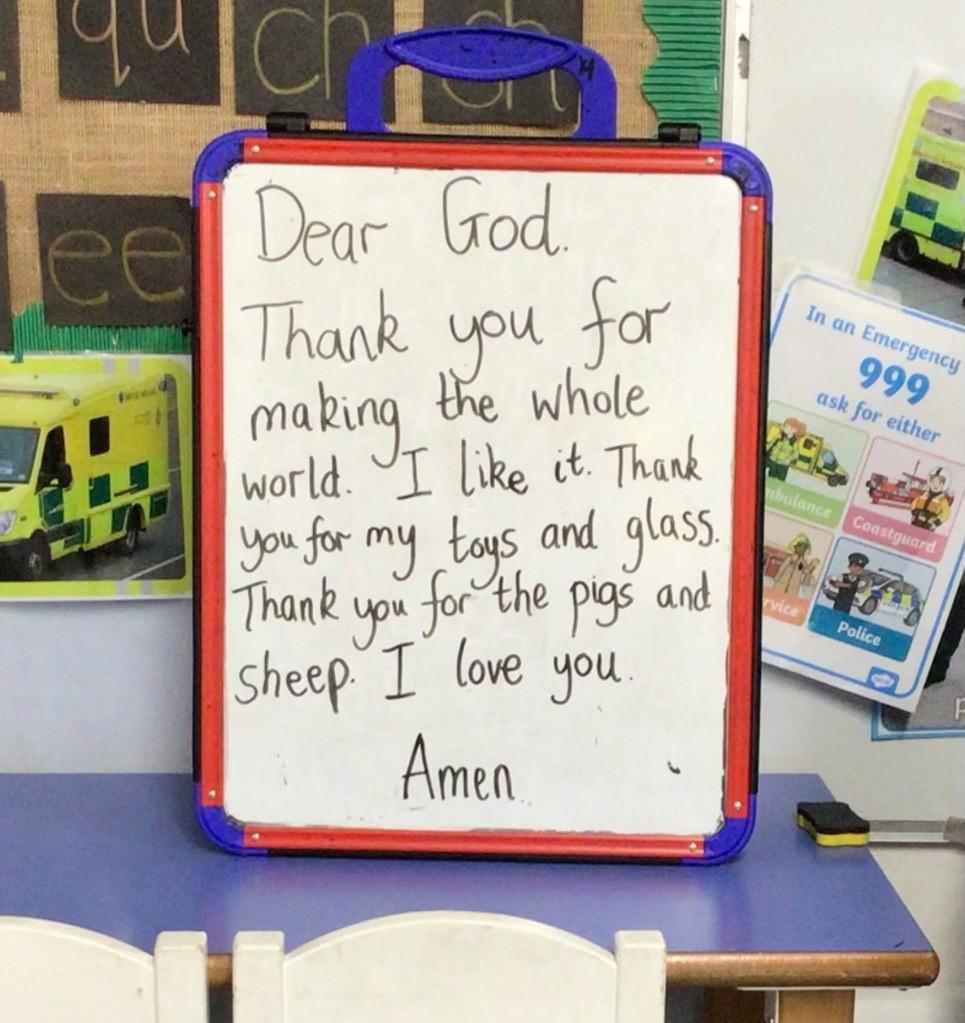 qu
ch
sh
ee
Dear God.
Thank you for
making the whole
world. I like it. Thank
you for my toys and glass.
Thank you for the pigs and
sheep. I love you.
Amen.
In an Emergency
999
ask for either
Coastguard
Police